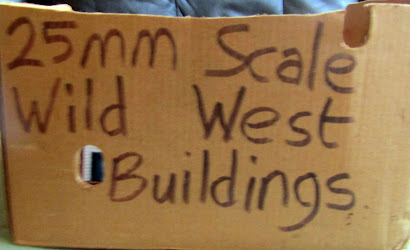 25mm Scale
Wild West
Buildings